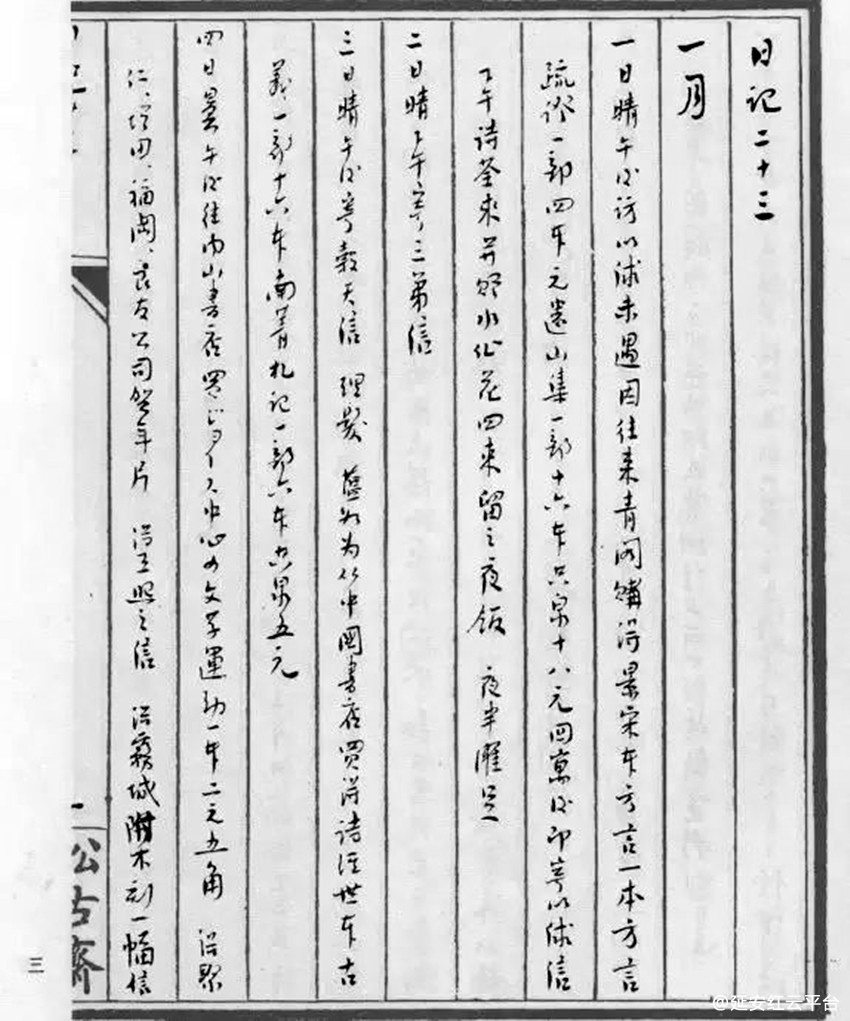 日记二十三
一月
一日晴午后访以俅未遇因往来青阁購得景宋本方言一本方言
疏證一部四本元遺山集一部十六本共泉十八元回寓后即寄以俅信
下午诗荃来并贈水仙花四束留之夜飯　夜半濯足
二日晴下午寄三弟信
三日晴午后寄穀天信　理髮　蘊如为从中國書店買得诗経世本古
義一部十六本南菁札记一部六本共泉五元
四日曇午后往内山書店買ジョイス中心の文学運動一本二元五角　得聚
仁、增田、福岡、良友公司贺年片　得王熙之信　得霧城附木刻一幅信
公古齋
三
@延安红云平台